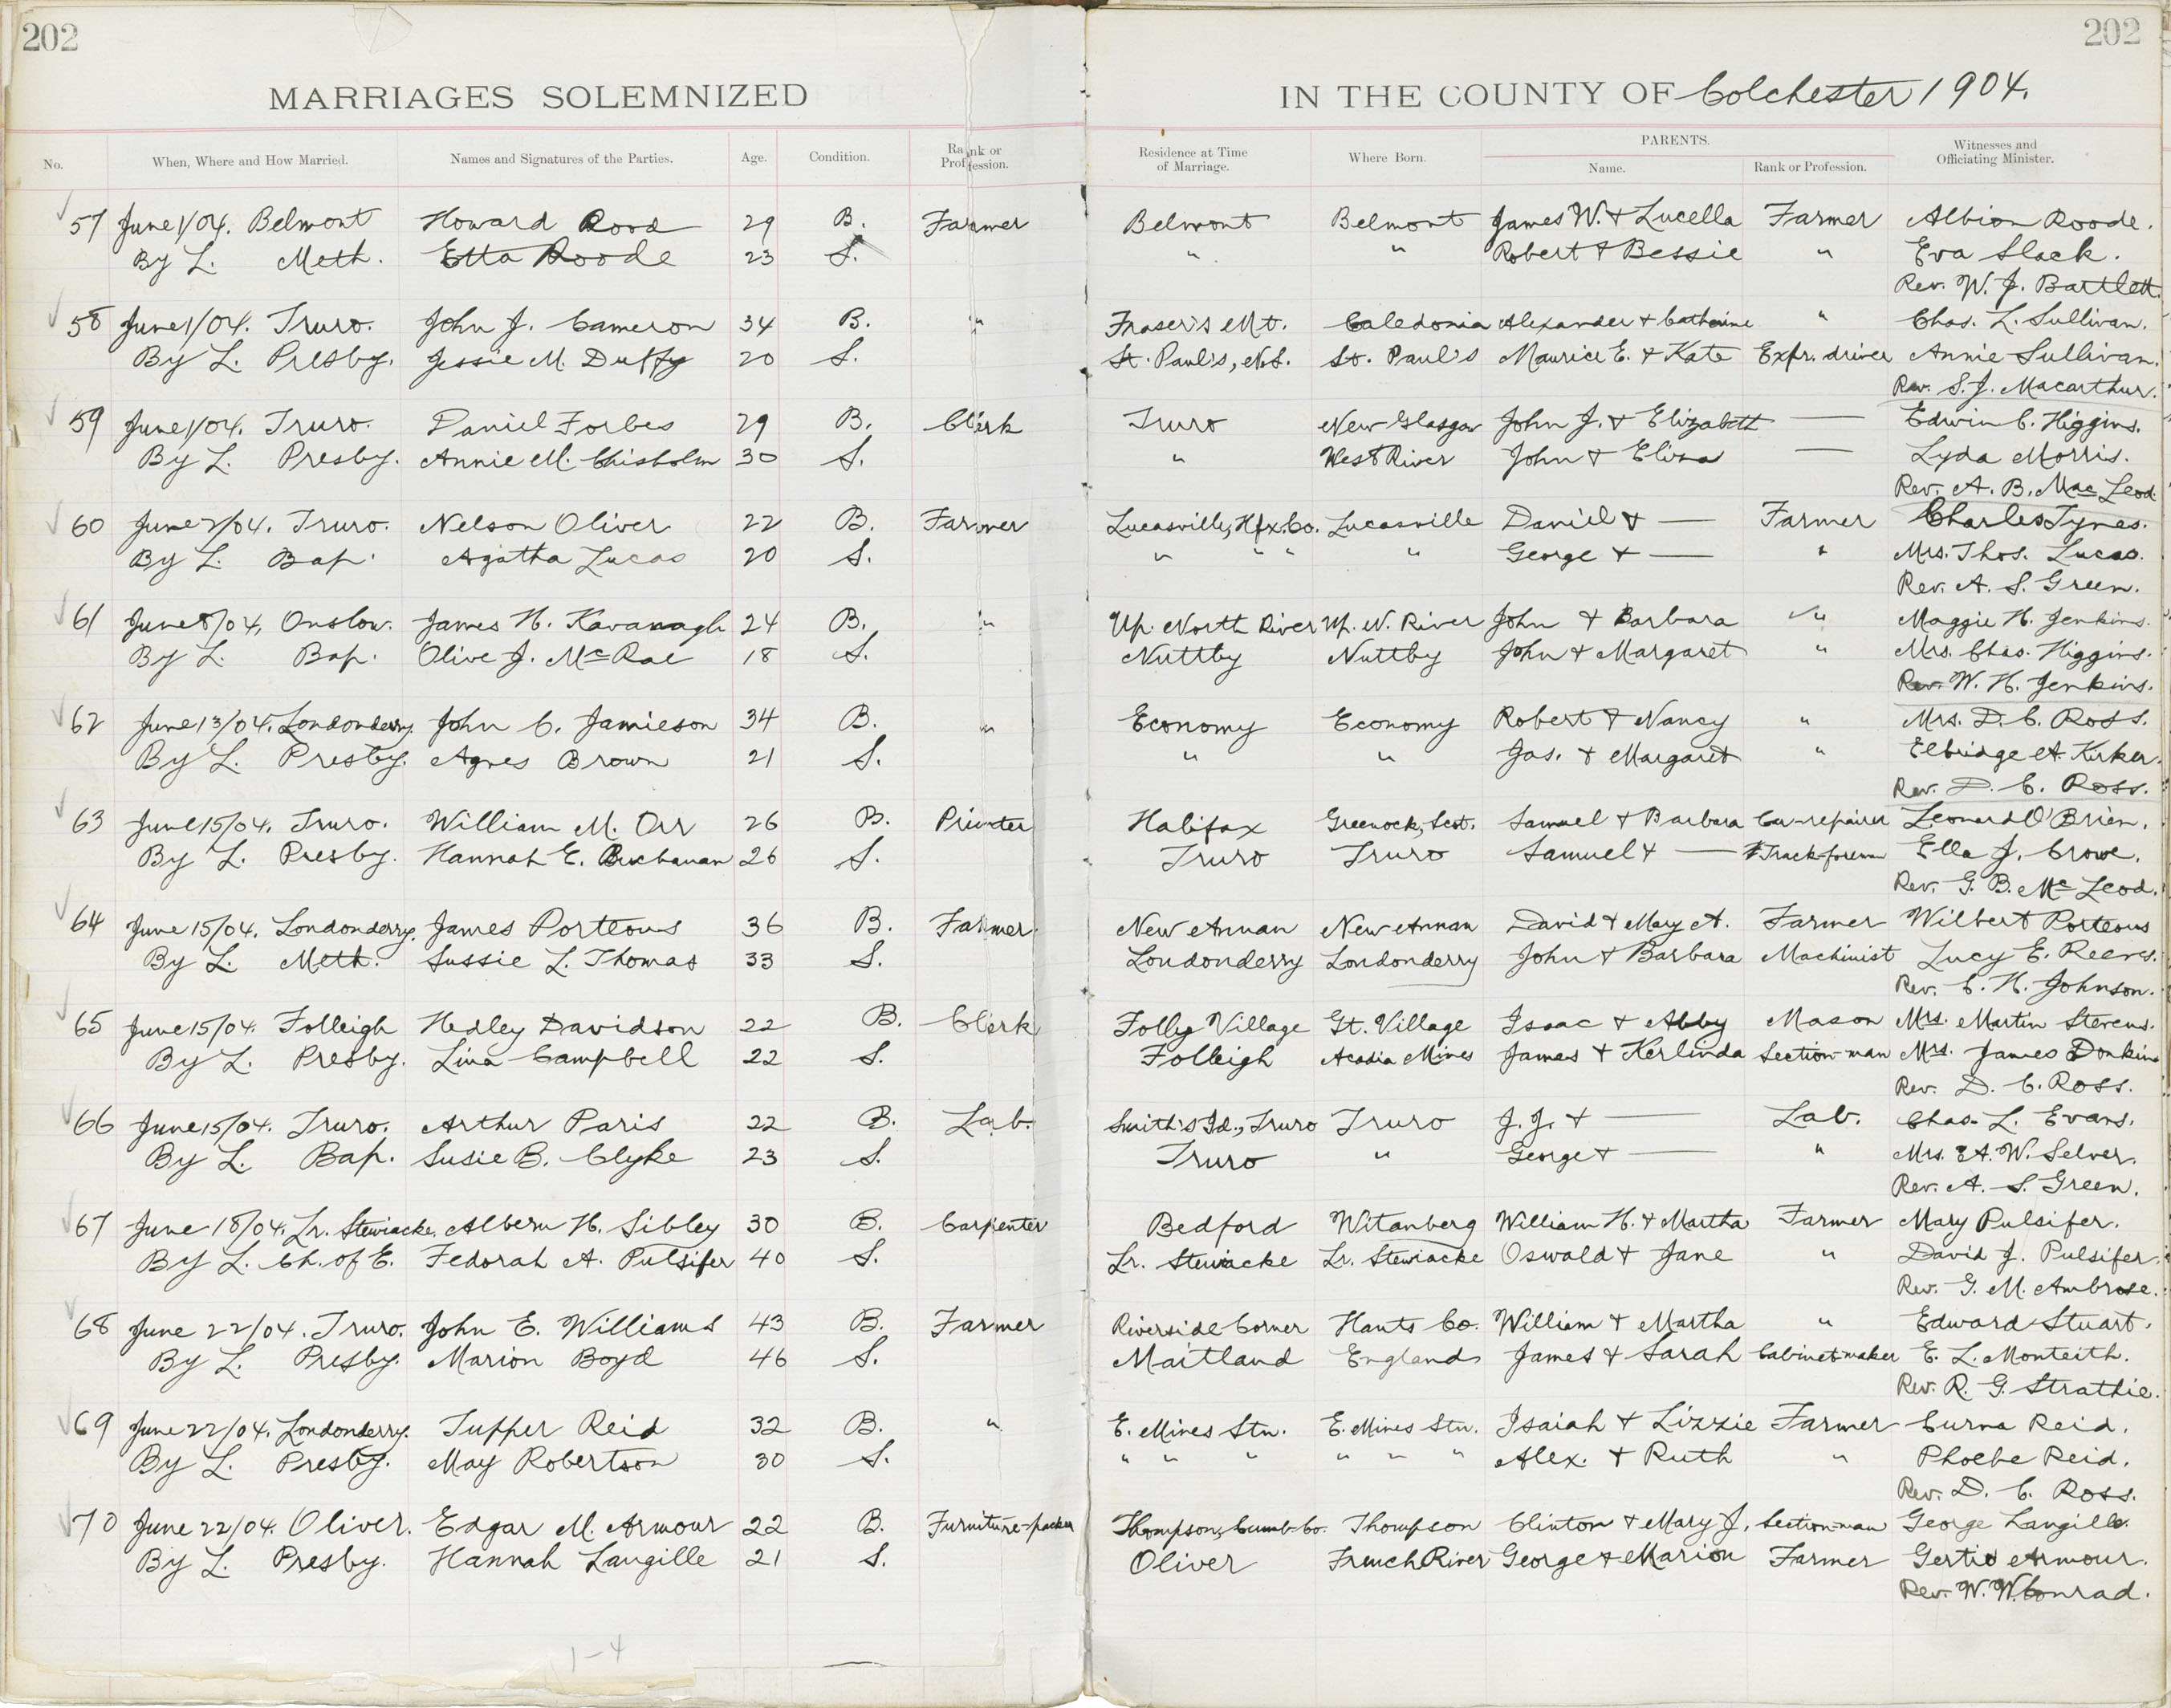 202 202
MARRIAGES SOLEMNIZED IN THE COUNTY OF Colchester 1904.
No. When, Where and How Married. Names and Signatures of the Parties. Age. Condition. Rank or Profession. Residence at Time of Marriage. Where Born. PARENTS. Name. Rank or Profession. Witnesses and Officiating Minister.
57 June 1/04. Belmont Howard Rood 29 B. Farmer Belmont Belmont James W. & Lucella Farmer Albion Roode.
By L. Meth. Etta Roode 23 S. " " Robert & Bessie " Eva Slack.
Rev. W. J. Bartlett.
58 June 1/04. Truro. John J. Cameron 34 B. " Fraser's Mt. Caledonia Alexander & Catherine " Chas. L. Sullivan.
By L. Presby. Jessie M. Duffy 20 S. St. Paul's, N.S. St. Paul's Maurice E. & Kate Expr. driver Annie Sullivan.
Rev. S. J. Macarthur.
59 June 1/04. Truro. Daniel Forbes 29 B. Clerk Truro New Glasgow John J. & Elizabeth — Edwin C. Higgins.
By L. Presby. Annie M. Chisholm 30 S. " West River John & Eliza — Lyda Morris.
Rev. A. B. MacLeod.
60 June 2/04. Truro. Nelson Oliver 22 B. Farmer Lucasville, Hfx. Co. Lucasville Daniel & — Farmer Charles Tynes.
By L. Bap. Agatha Lucas 20 S. " " " " George & — " Mrs. Thos. Lucas.
Rev. A. S. Green.
61 June 8/04. Onslow. James H. Kavanagh 24 B. " Up. North River Up. N. River John & Barbara " Maggie H. Jenkins.
By L. Bap. Olive J. McRae 18 S. Nuttby Nuttby John & Margaret " Mrs. Chas. Higgins.
Rev. W. H. Jenkins.
62 June 13/04. Londonderry. John C. Jamieson 34 B. " Economy Economy Robert & Nancy " Mrs. D. C. Ross.
By L. Presby. Agnes Brown 21 S. " " Jas. & Margaret " Elbridge A. Kirker.
Rev. D. C. Ross.
63 June 15/04. Truro. William M. Orr 26 B. Printer Halifax Greenock, Scot. Samuel & Barbara Car-repairer Leonard O'Brien.
By L. Presby. Hannah E. Buchanan 26 S. Truro Truro Samuel & — Track-foreman Ella J. Crowe.
Rev. G. B. McLeod.
64 June 15/04. Londonderry. James Porteous 36 B. Farmer New Annan New Annan David & Mary A. Farmer Wilbert Porteous
By L. Meth. Sussie L. Thomas 33 S. Londonderry Londonderry John & Barbara Machinist Lucy E. Reeves.
Rev. C. H. Johnson.
65 June 15/04. Folleigh Hedley Davidson 22 B. Clerk Folly Village Gt. Village Isaac & Abby Mason Mrs. Martin Stevens.
By L. Presby. Lina Campbell 22 S. Folleigh Acadia Mines James & Kerlinda Section-man Mrs. James Donkin
Rev. D. C. Ross.
66 June 15/04. Truro. Arthur Paris 22 B. Lab. Smith's Id., Truro Truro J. J. & — Lab. Chas. L. Evans.
By L. Bap. Susie B. Clyke 23 S. Truro " George & — " Mrs. A. W. Selver.
Rev. A. S. Green.
67 June 18/04. Lr. Stewiacke. Albern H. Sibley 30 B. Carpenter Bedford Witanberg William H. & Martha Farmer Mary Pulsifer.
By L. Ch. of E. Fedorah A. Pulsifer 40 S. Lr. Stewiacke Lr. Stewiacke Oswald & Jane " David J. Pulsifer.
Rev. G. M. Ambrose.
68 June 22/04. Truro. John E. Williams 43 B. Farmer Riverside Corner Hants Co. William & Martha " Edward Stuart.
By L. Presby. Marion Boyd 46 S. Maitland England James & Sarah Cabinet-maker E. L. Monteith.
Rev. R. G. Strathie.
69 June 22/04. Londonderry. Tupper Reid 32 B. " E. Mines Stn. E. Mines Stn. Isaiah & Lizzie Farmer Curna Reid.
By L. Presby. May Robertson 30 S. " " " " " " Alex. & Ruth " Phoebe Reid.
Rev. D. C. Ross.
70 June 22/04. Oliver. Edgar M. Armour 22 B. Furniture-packer Thompson, Cumb. Co. Thompson Clinton & Mary J. Section-man George Langille.
By L. Presby. Hannah Langille 21 S. Oliver French River George & Marion Farmer Gertie Armour.
Rev. W. W. Conrad.
1-4